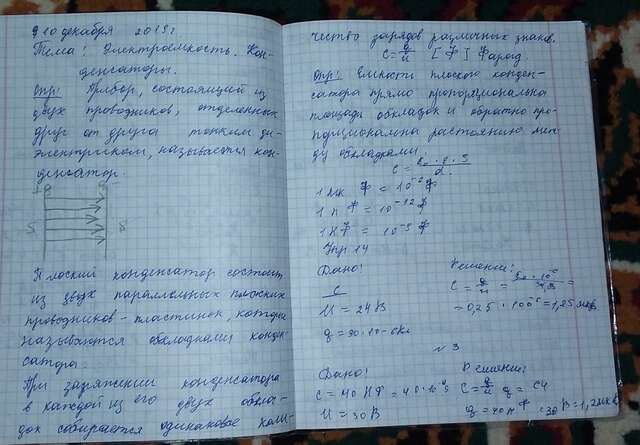 9 10 декабря 2015 г
Тема: Электроемкость. Кон-
денсаторы.
Опр: Прибор, состоящий из
двух проводников, отделенных
друг от друга тонким ди-
электриком, называется кон-
денсатор.
Плоский конденсатор состоит
из двух параллельных плоских
проводников - пластинок, которые
называются обкладками конден-
сатора.
При заряжении конденсатора
в каждой из его двух обкла-
док собирается одинаковое коли-
чество зарядов различных знаков.
C = q/u [Ф] Фарад
Опр: Емкости плоского конден-
сатора прямо пропорциональна
площади обкладок и обратно про-
порциональна расстоянию меж-
ду обкладками.
1 мк Ф = 10⁻⁶ Ф
1 п Ф = 10⁻¹² Ф
1 н Ф = 10⁻⁹ Ф
Упр 14
Дано: Решение:
C
U = 24 В
№ 3
Дано: Решение:
U = 30 В